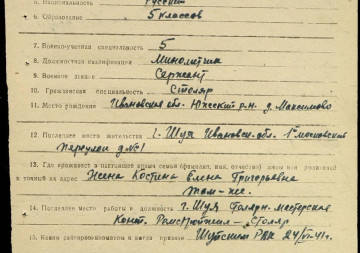 5. Национальность Русский
6. Образование 5 классов
7. Военно-учетная специальность 5
8. Должностная квалификация Минометчик
9. Военное звание Сержант
10. Гражданская специальность Столяр
11. Место рождения Ивановская обл. Южский р-н. д. Максимово
12. Последнее место жительства г. Шуя Ивановск. обл. 1й московский
переулок д №1
13. Где проживает в настоящее время семья (фамилия, имя, отчество) жены или родителей
и точный их адрес Жена Костина Елена Григорьевна
там-же.
14. Последнее место работы и должность г. Шуя мастерская
Столяр
15. Каким райгорвоенкоматом и когда призван Шуйским РВК 24/VI-41г.